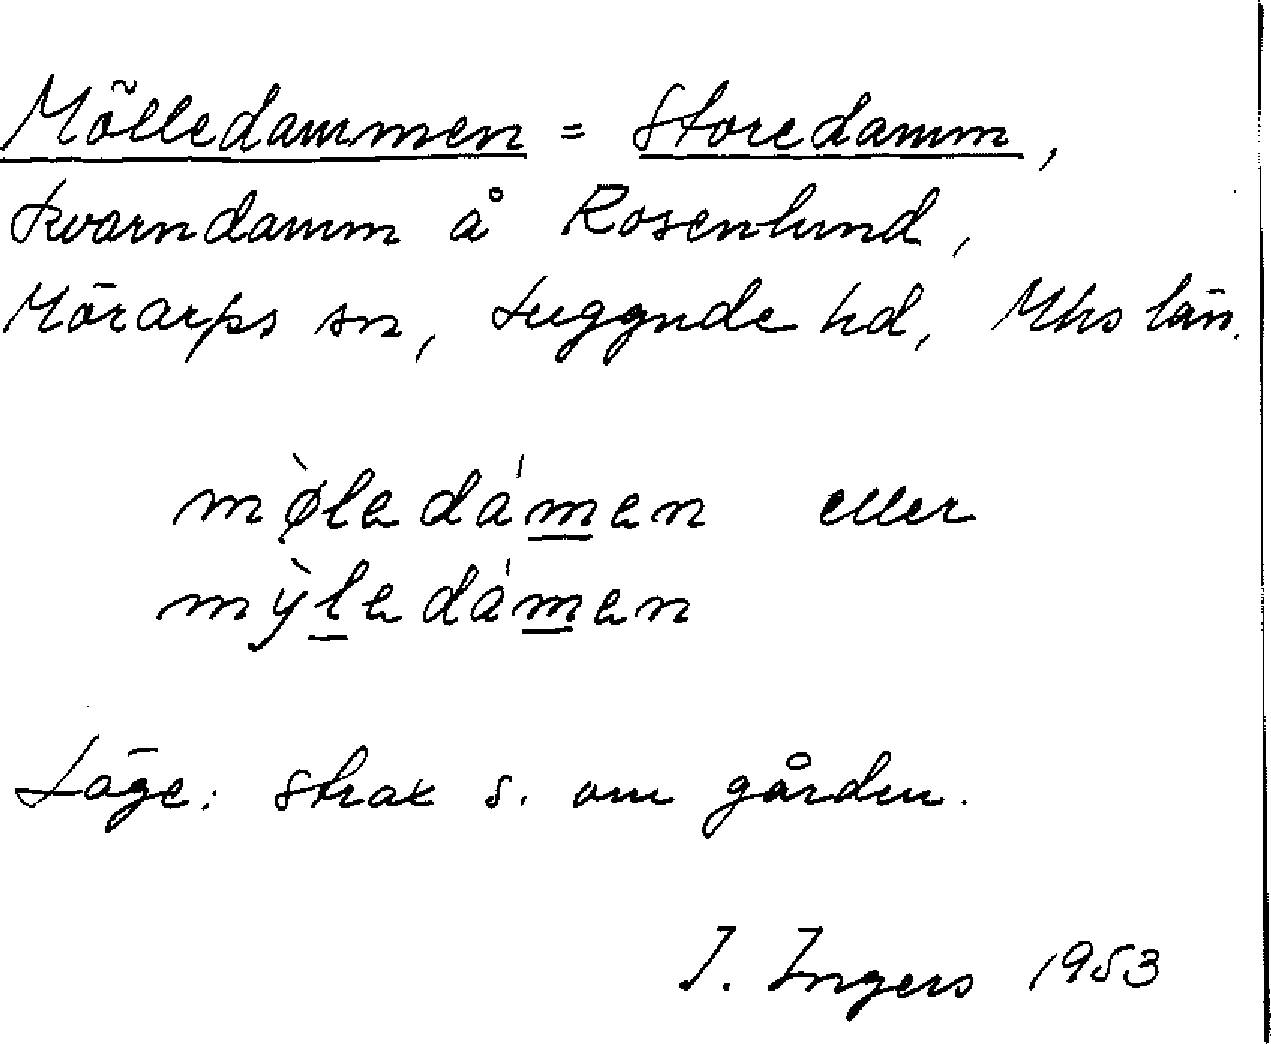 Mölledammen = Storedamm,
kvarndamm å Rosenlund,
Mörarps sn, Luggude hd, Mhs län.
mø̀ledám̲en eller
mỳl̲edám̲en
Läge: strax s. om gården.
I. Ingers 1953